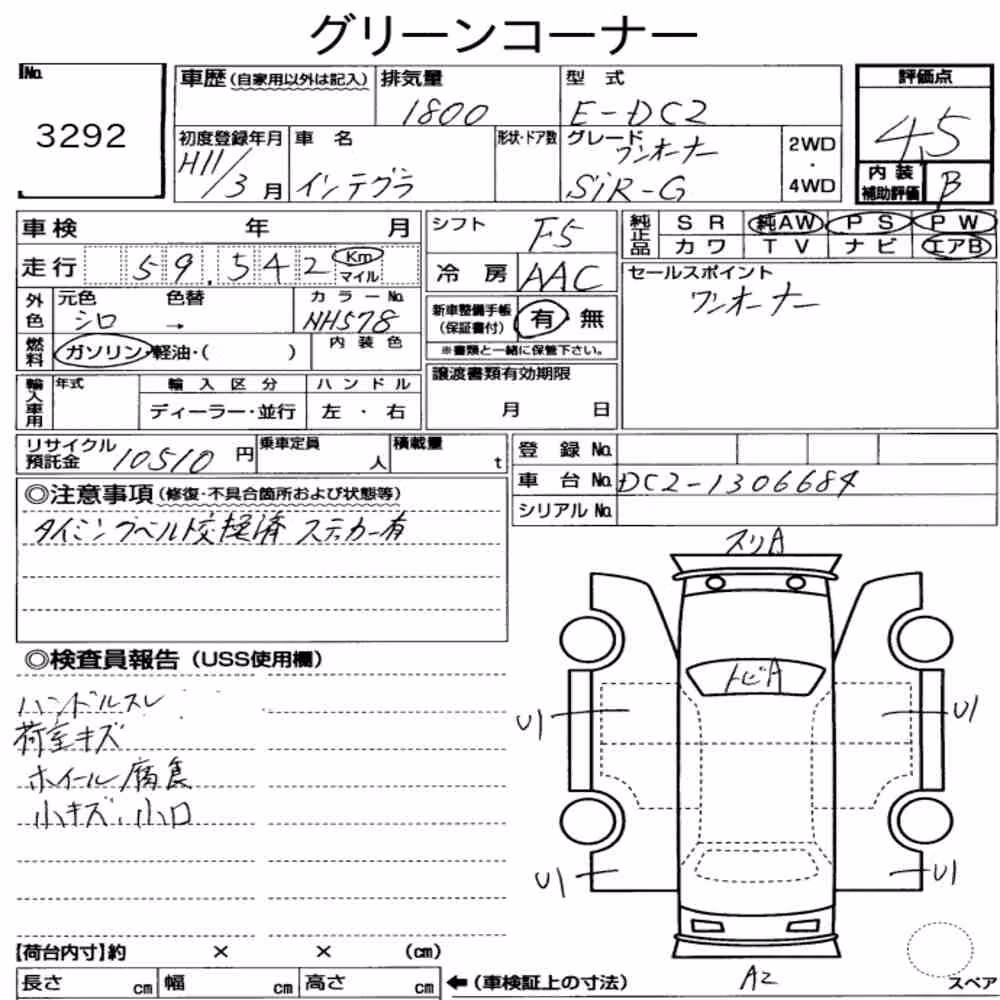 グリーンコーナー
No. 3292
車歴(自家用以外は記入) 排気量 1800 型 式 E-DC2
評価点 4.5
初度登録年月 H11/3月 車 名 インテグラ 形状・ドア数 グレード ワンオーナー SiR-G 2WD・4WD
内装補助評価 B
車検 年 月
走行 59,542 Km マイル
外色 元色 シロ 色替 → カラーNo. NH578
燃料 ガソリン・軽油・( ) 内装色
輸入車用 年式 輸入区分 ディーラー・並行 ハンドル 左・右
シフト F5
冷 房 AAC
新車整備手帳(保証書付) 有 無
※書類と一緒に保管下さい。
譲渡書類有効期限
月 日
純正品 SR 純AW PS PW
カワ TV ナビ エアB
セールスポイント
ワンオーナー
リサイクル預託金 10510円 乗車定員 人 積載量 t
登 録 No.
車 台 No. DC2-1306684
シリアル No.
◎注意事項(修復・不具合箇所および状態等)
タイミングベルト交換済 ステッカー有
◎検査員報告(USS使用欄)
ハンドルスレ
荷室キズ
ホイール腐食
小キズ、小凹
スリA
トビA
U1 U1
U1 U1
A2
スペア
【荷台内寸】約 × × (cm)
長さ cm 幅 cm 高さ cm ←(車検証上の寸法)